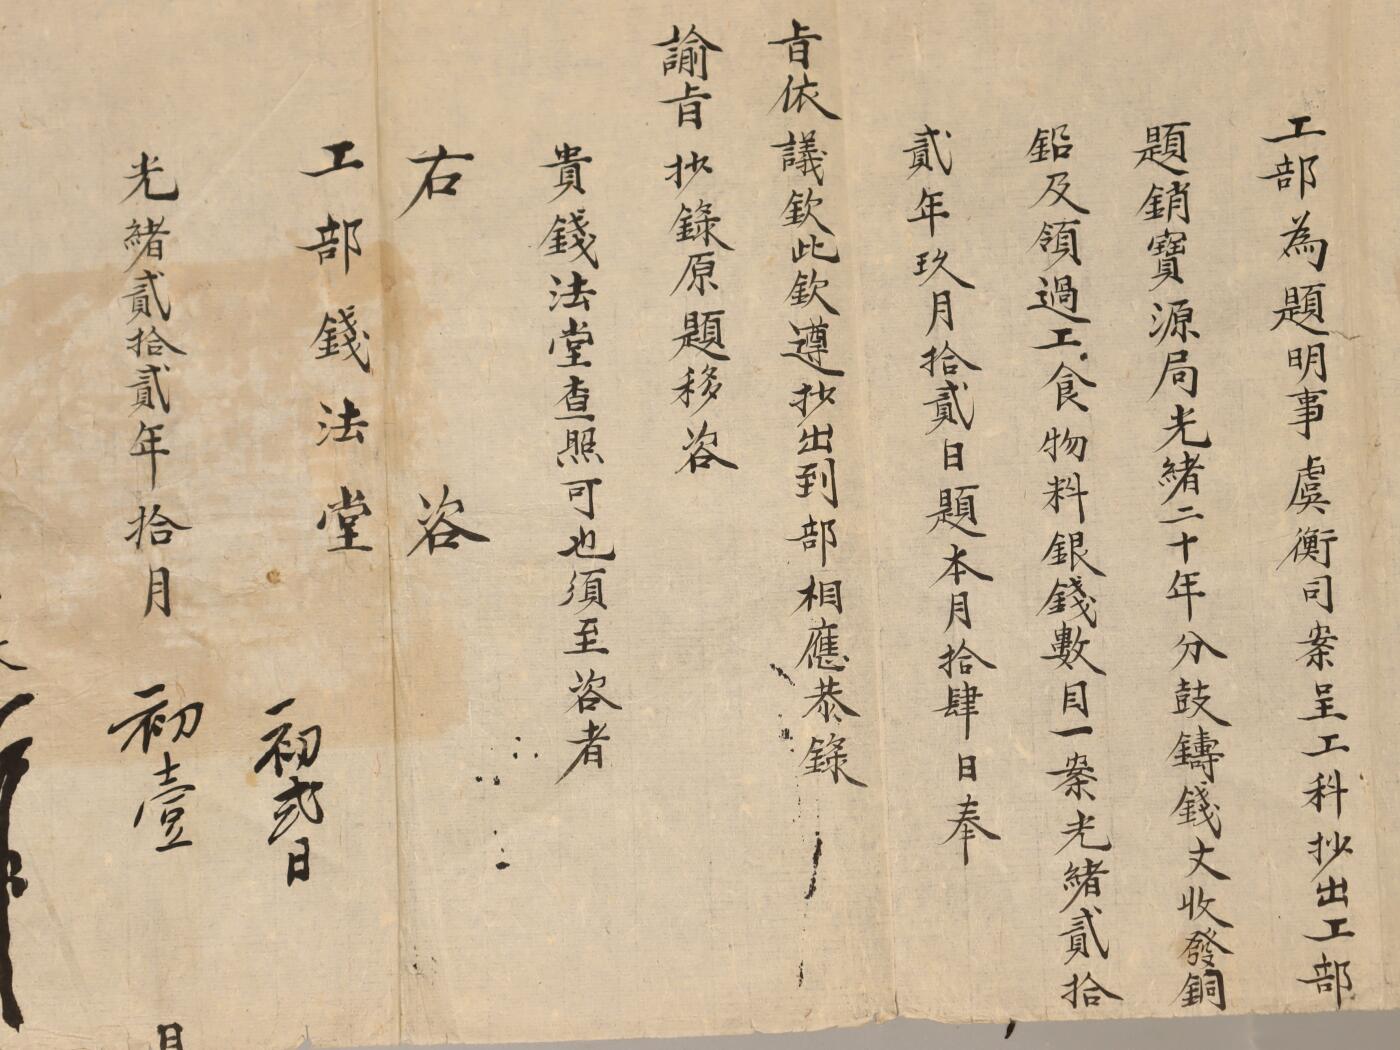 工部為題明事虞衡司案呈工科抄出工部
題銷寶源局光緒二十年分鼓鑄錢文收發銅
鉛及領過工食物料銀錢數目一案光緒貳拾
貳年玖月拾貳日題本月拾肆日奉
旨依議欽此欽遵抄出到部相應恭錄
諭旨抄錄原題移咨
貴錢法堂查照可也須至咨者
右咨
工部錢法堂
初貳日
光緒貳拾貳年拾月初壹日